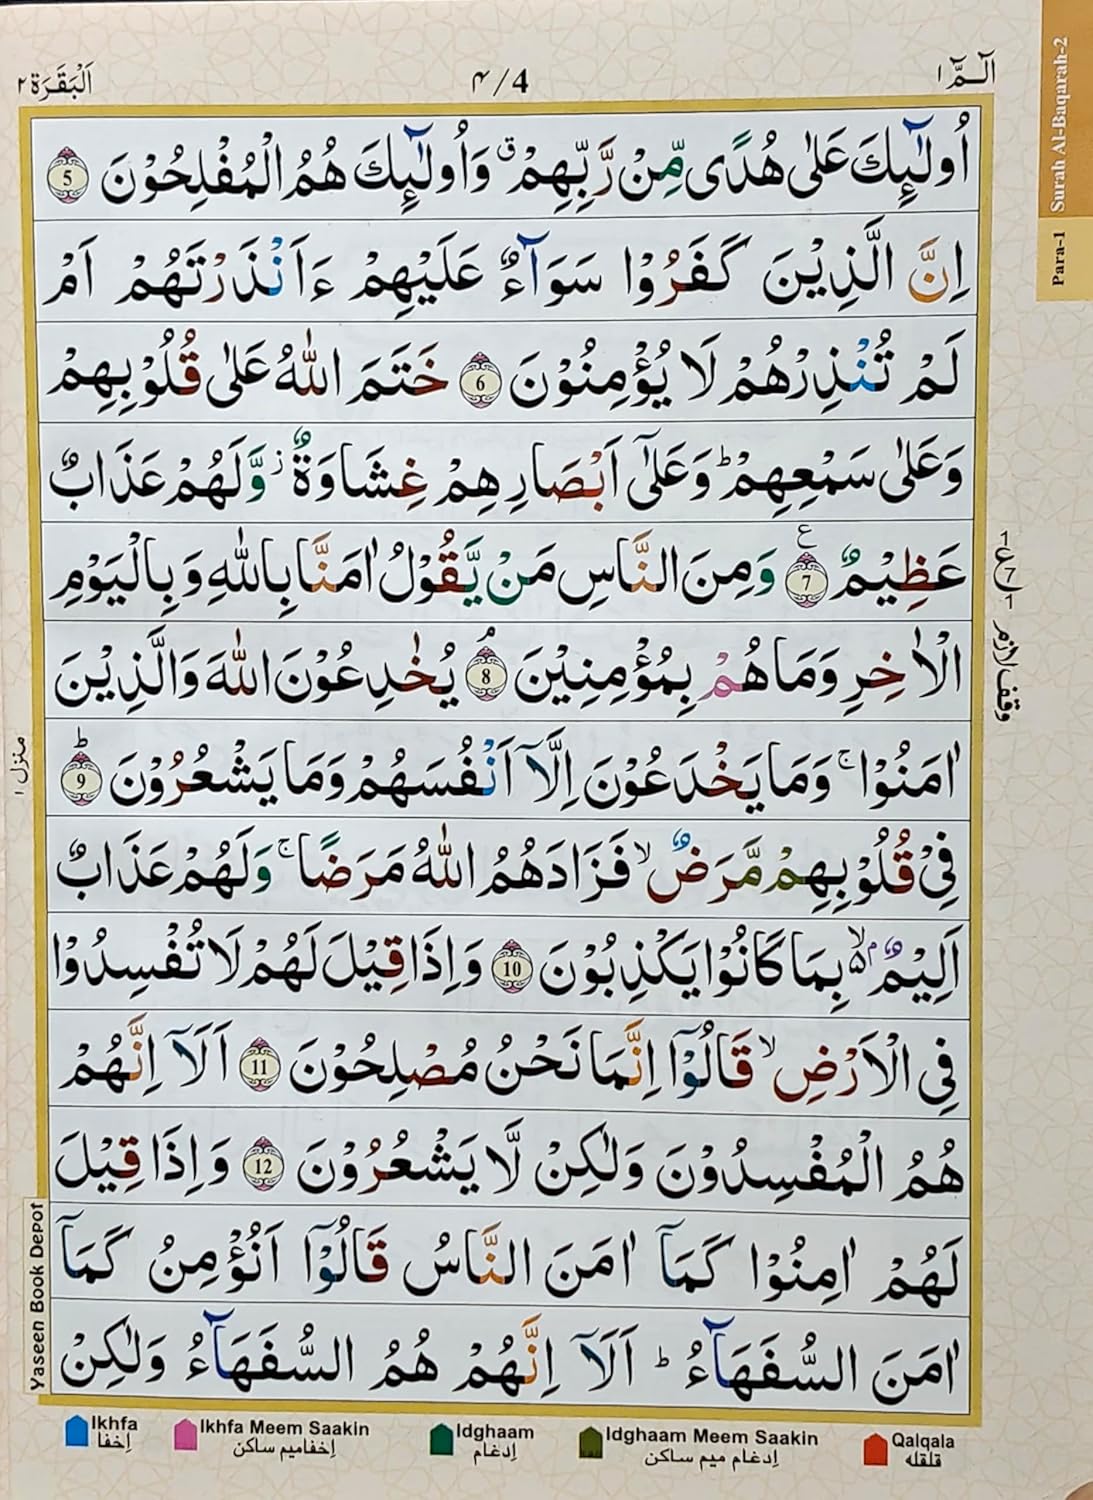 الٓمّٓ ١
٤/4
اَلْبَقَرَة ٢
Surah Al-Baqarah-2
Para-1
اُولٰٓئِكَ عَلٰى هُدًى مِّنْ رَّبِّهِمْ ۗ وَاُولٰٓئِكَ هُمُ الْمُفْلِحُوْنَ 5
اِنَّ الَّذِيْنَ كَفَرُوْا سَوَآءٌ عَلَيْهِمْ ءَاَنْذَرْتَهُمْ اَمْ
لَمْ تُنْذِرْهُمْ لَا يُؤْمِنُوْنَ 6 خَتَمَ اللّٰهُ عَلٰى قُلُوْبِهِمْ
وَعَلٰى سَمْعِهِمْ ؕ وَعَلٰٓى اَبْصَارِهِمْ غِشَاوَةٌ ز وَّلَهُمْ عَذَابٌ
عَظِيْمٌ 7 ع وَمِنَ النَّاسِ مَنْ يَّقُوْلُ اٰمَنَّا بِاللّٰهِ وَبِالْيَوْمِ
الْاٰخِرِ وَمَا هُمْ بِمُؤْمِنِيْنَ 8 ۘ يُخٰدِعُوْنَ اللّٰهَ وَالَّذِيْنَ
اٰمَنُوْا ۚ وَمَا يَخْدَعُوْنَ اِلَّآ اَنْفُسَهُمْ وَمَا يَشْعُرُوْنَ 9 ؕ
فِيْ قُلُوْبِهِمْ مَّرَضٌ ۙ فَزَادَهُمُ اللّٰهُ مَرَضًا ۚ وَلَهُمْ عَذَابٌ
اَلِيْمٌ ۢ ۙ۬ بِمَا كَانُوْا يَكْذِبُوْنَ 10 وَاِذَا قِيْلَ لَهُمْ لَا تُفْسِدُوْا
فِي الْاَرْضِ ۙ قَالُوْٓا اِنَّمَا نَحْنُ مُصْلِحُوْنَ 11 اَلَآ اِنَّهُمْ
هُمُ الْمُفْسِدُوْنَ وَلٰكِنْ لَّا يَشْعُرُوْنَ 12 وَاِذَا قِيْلَ
لَهُمْ اٰمِنُوْا كَمَآ اٰمَنَ النَّاسُ قَالُوْٓا اَنُؤْمِنُ كَمَآ
اٰمَنَ السُّفَهَآءُ ؕ اَلَآ اِنَّهُمْ هُمُ السُّفَهَآءُ وَلٰكِنْ
1 ع 7 1
وقف لازم
منزل ١
Yaseen Book Depot
Ikhfa
إخفا
Ikhfa Meem Saakin
إخفا ميم ساكن
Idghaam
إدغام
Idghaam Meem Saakin
إدغام ميم ساكن
Qalqala
قلقله